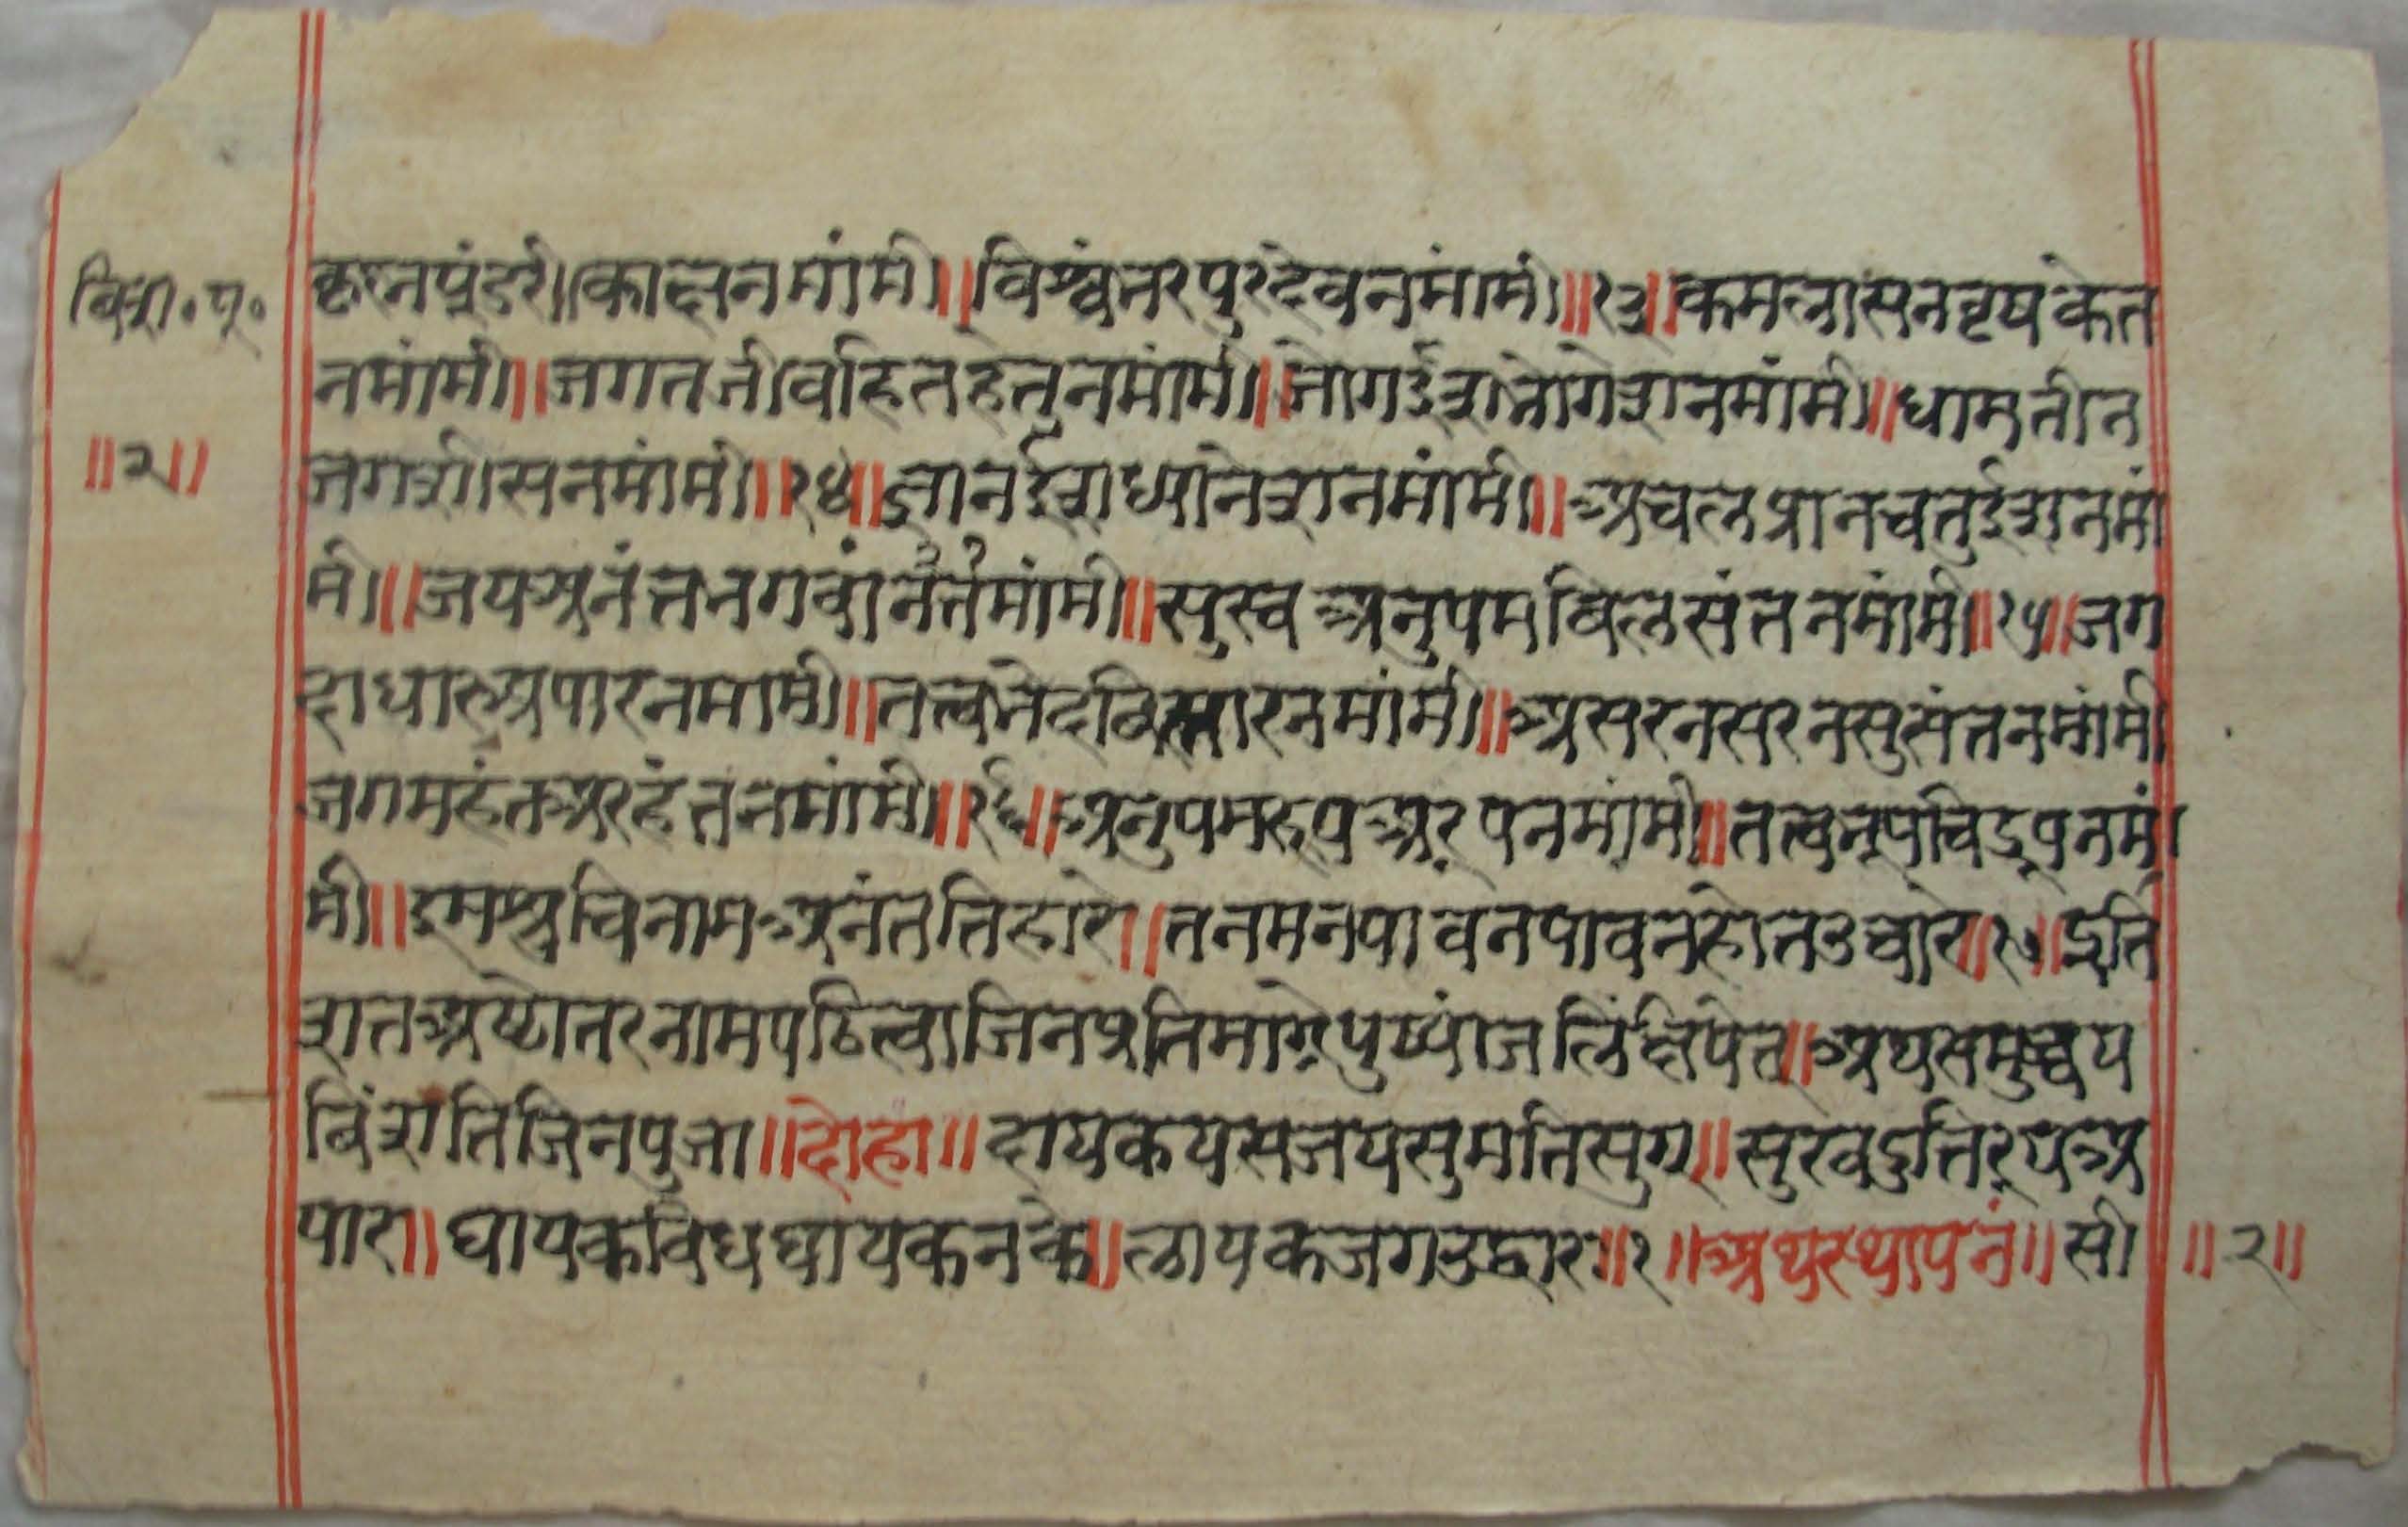 विंश॰पू॰
कृस्नपुंडरीकाक्षनमांमी॥विश्वंभरपुरदेवनमांमी॥१३॥कमलासनवृषकेत
नमांमी॥जगतजीवहितहेतुनमांमी॥जोगईशजोगेशनमांमी॥धामतीन
॥२॥
जगशीसनमांमी॥१४॥ज्ञानईशध्यानेशनमांमी॥अचलप्रानचतुईशनमां
मी॥जयअनंतभगवांनंनमांमी॥सुस्वअनुपमविलसंतनमांमी॥१५॥जग
दाधारअपारनमामी॥तत्वभेदविस्तारनमांमी॥असरनसरनसुसंतनमांमी
जगमहंतअरहंतनमांमी॥१६॥अनुपमरूपअरूपनमांमी॥तत्वभूपचिद्रूपनमां
मी॥इमश्रुचिनामअनंततिहारे॥तनमनपावनपावनहोतउच्चारे॥१७॥इति
शतअष्टोतरनामपठित्वाजिनप्रतिमाग्रेपुष्पांजलिंक्षिपेत्॥अथसमुच्चय
बिंशतिजिनपुजा॥दोहा॥दायकयसजयसुमतिसुग॥सुखदुतिरूपअ
पार॥घायकविघघायकनके॥लायकजगउद्धार॥१॥अथस्थापनं॥सी
॥२॥